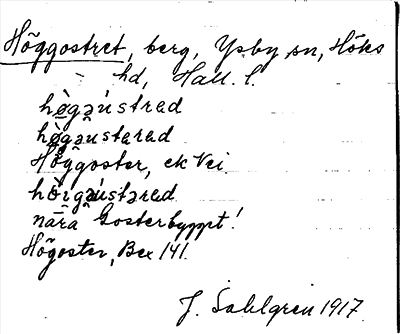 Höggostret, berg, Ysby sn, Höks
hd, Hall. l.
hògəústrəd
hø̀gəustərəd
Höggoster, ek Vei.
hö̀ɪgəústərəd
nära Gosterbyppt!
Högoster, Bex 141.
J. Sahlgren 1917